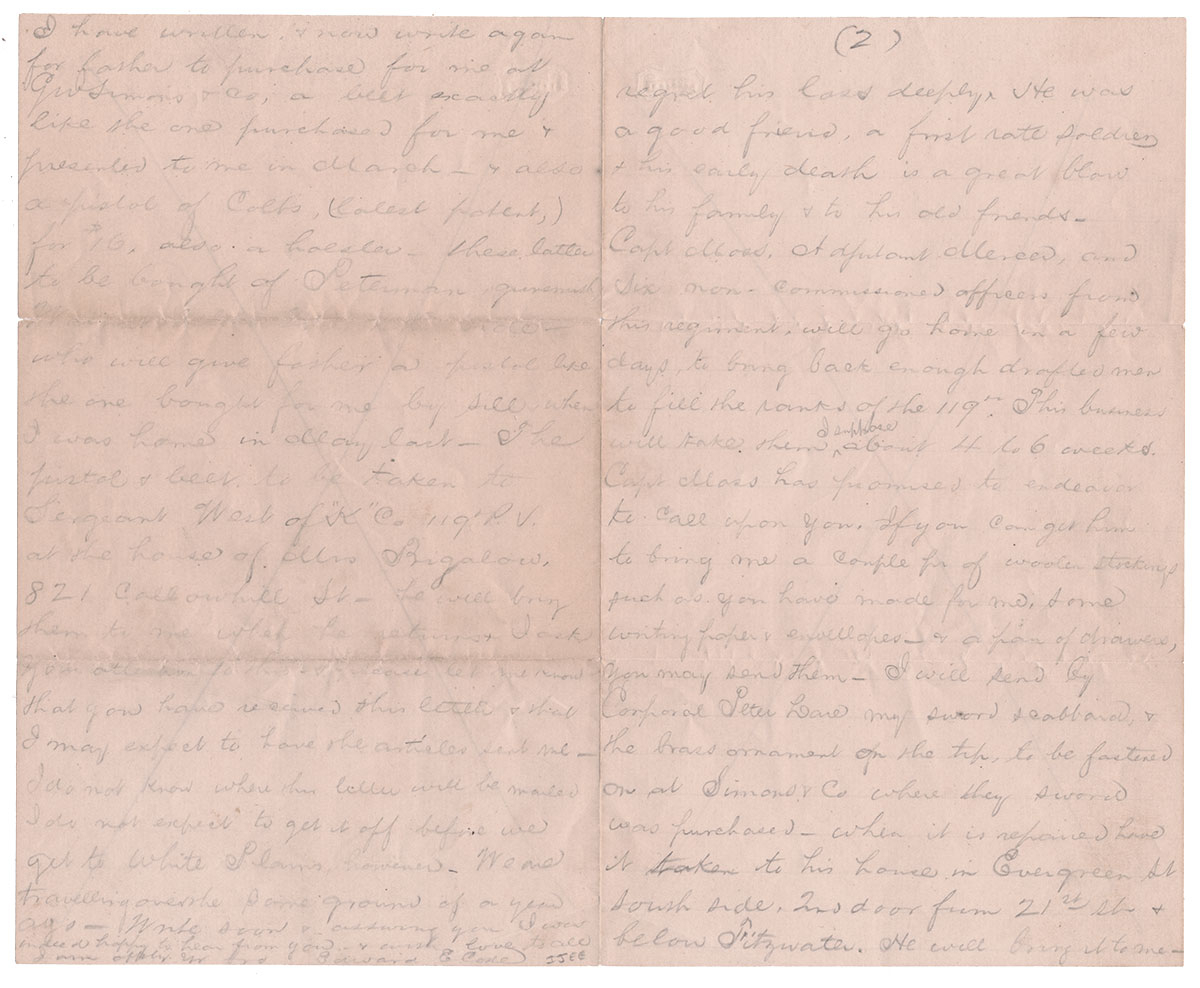 I have written, & now write again
for father to purchase for me at
Geo Simons & Co, a belt exactly
like the one purchased for me &
presented to me in March — & also
a pistol of Colts, (latest patent,)
for $16, also a holster — these latter
to be bought of Peterman
who will give father a pistol like
the one bought for me by Sill when
I was home in May last — The
pistol & belt, to be taken to
Sergeant West of "K" Co 119th P.V.
at the house of Mrs Bigalow,
821 Callowhill St — he will bring
them to me when he returns & I ask
your attention to this & please let me know
that you have received this letter & that
I may expect to have the articles sent me —
I do not know where this letter will be mailed
I do not expect to get it off before we
get to White Plains, however — We are
travelling over the same ground of a year
ago — Write soon & assuring you I was
indeed happy to hear from you, & with love to all
I am Edward E Coxe
(2)
regret his loss deeply. He was
a good friend, a first rate soldier
& his early death is a great blow
to his family & to his old friends —
Capt Moss, Adjutant Mercer, and
six non-commissioned officers from
this regiment, will go home in a few
days, to bring back enough drafted men
to fill the ranks of the 119th. This business
will take them, I suppose about 4 to 6 weeks.
Capt Moss has promised to endeavor
to call upon you. If you can get him
to bring me a couple pr of woolen stockings
such as you have made for me, some
writing paper & envellopes — & a pair of drawers,
you may send them — I will send by
Corporal Peter Lare my sword scabbard, &
the brass ornament on the tip, to be fastened
on at Simons & Co where they sword
was purchased — when it is repaired have
it taken to his house in Evergreen St
South side, 2nd door from 21st St &
below Fitzwater. He will bring it to me —